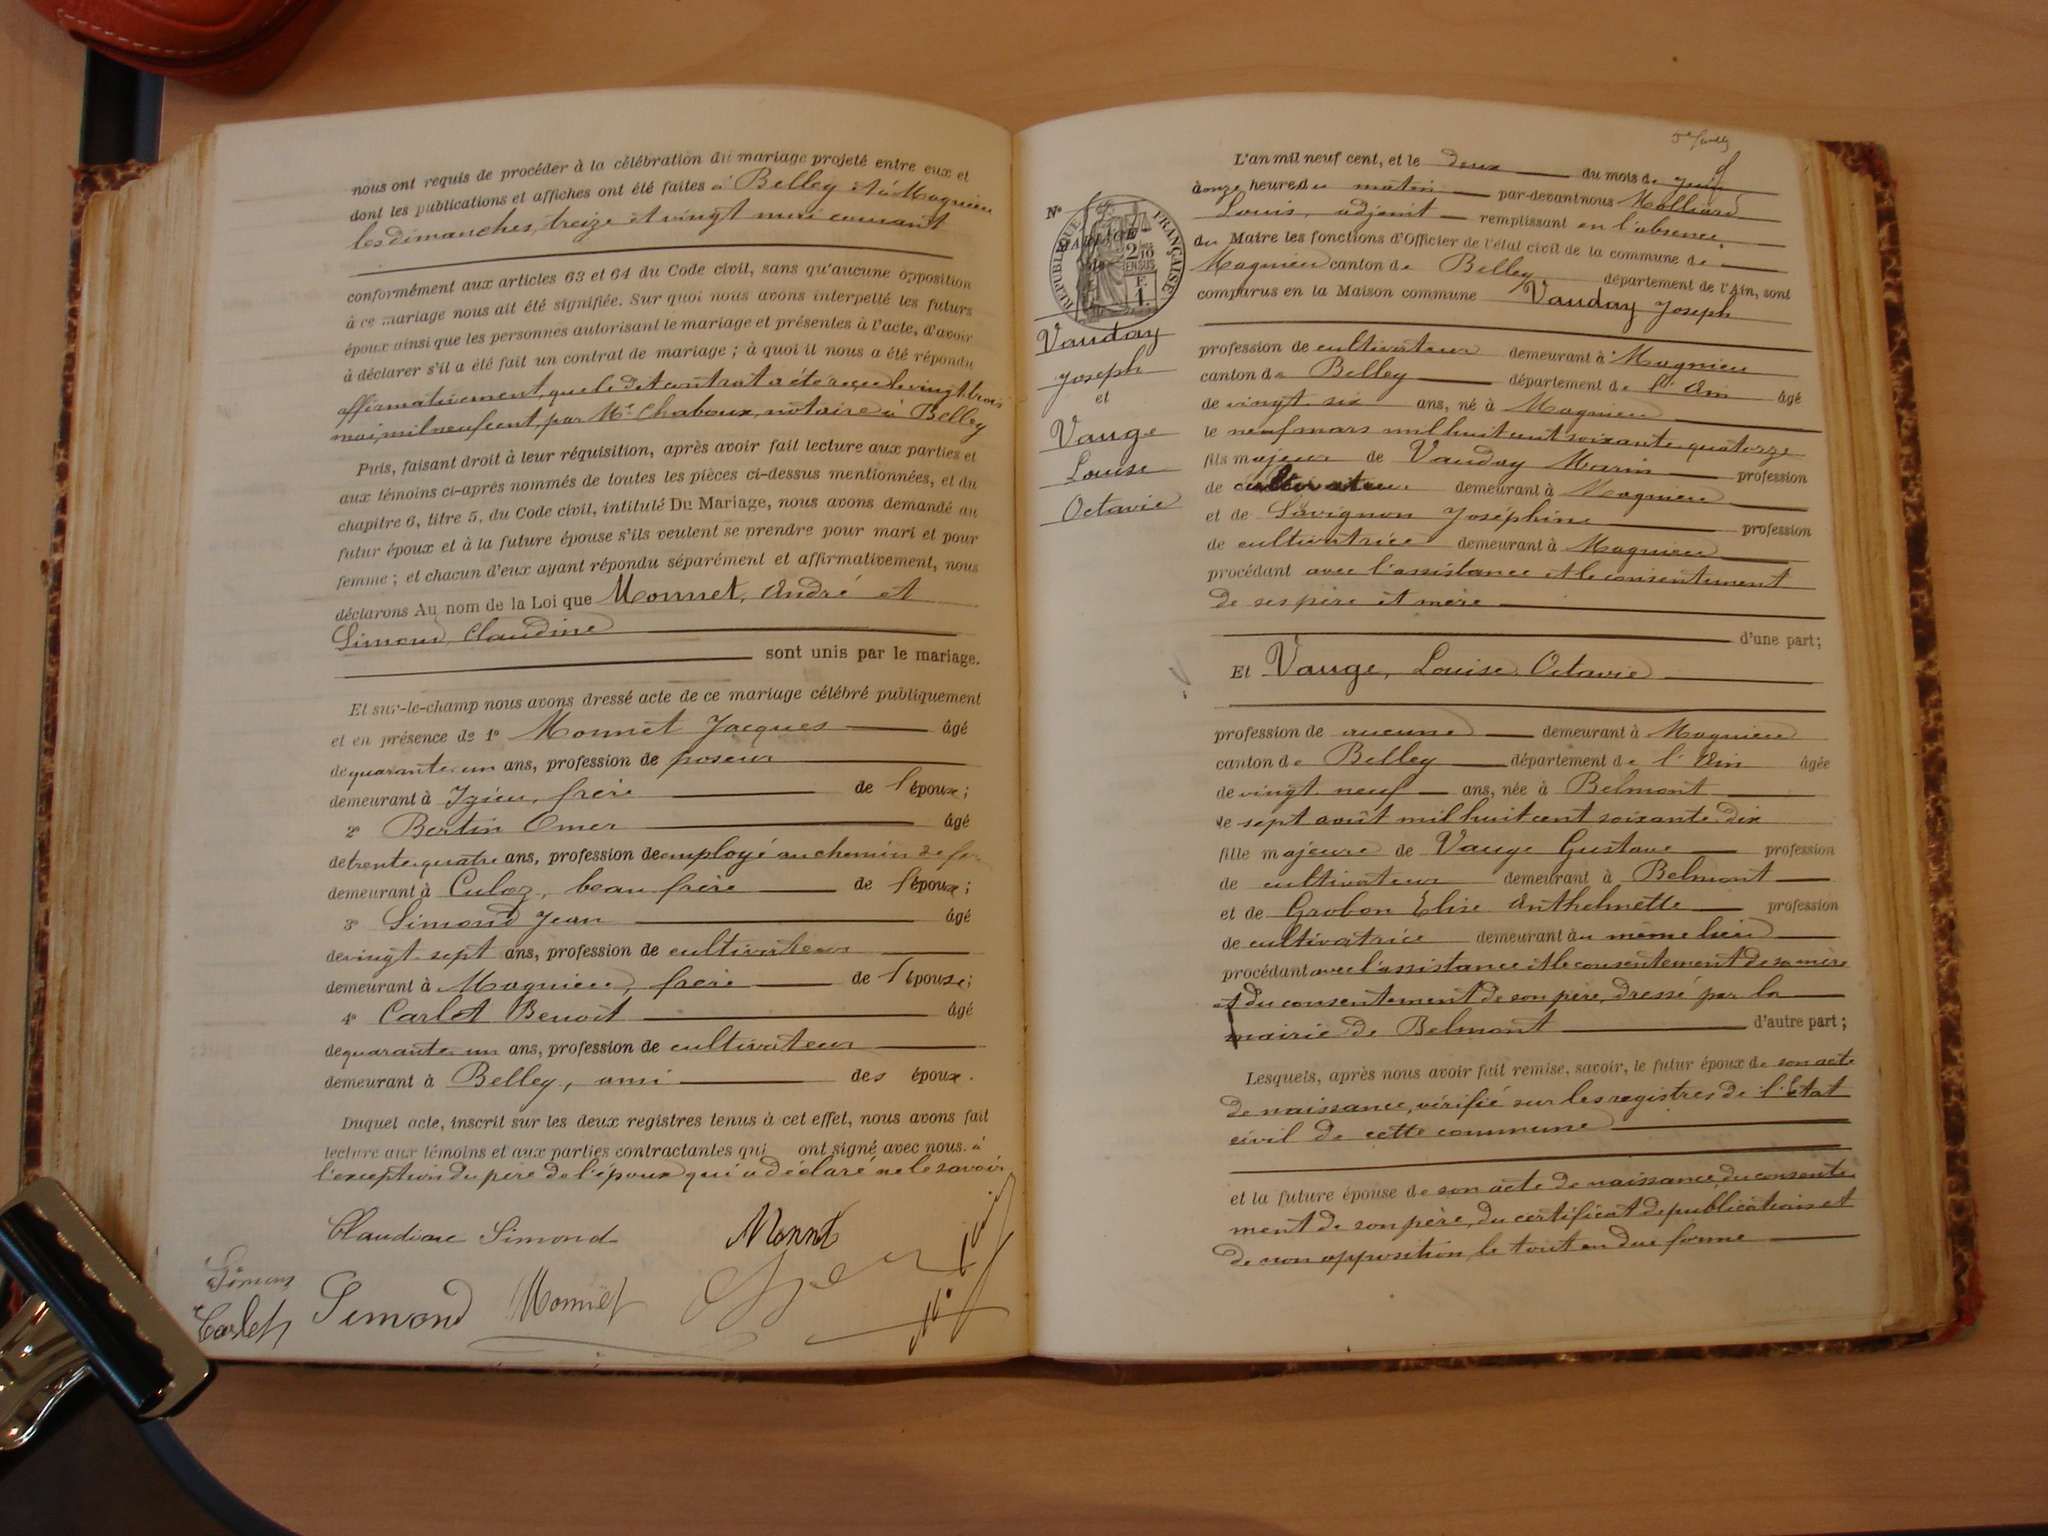 nous ont requis de procéder à la célébration du mariage projeté entre eux et
dont les publications et affiches ont été faites à Belley et à Magnieu
les dimanches, treize et vingt mai courant
conformément aux articles 63 et 64 du Code civil, sans qu'aucune opposition
à ce mariage nous ait été signifiée. Sur quoi nous avons interpellé les futurs
époux ainsi que les personnes autorisant le mariage et présentes à l'acte, d'avoir
à déclarer s'il a été fait un contrat de mariage ; à quoi il nous a été répondu
affirmativement, que le dit contrat a été reçu le vingt trois
mai, mil neuf cent, par Me Chaboux, notaire à Belley
Puis, faisant droit à leur réquisition, après avoir fait lecture aux parties et
aux témoins ci-après nommés de toutes les pièces ci-dessus mentionnées, et du
chapitre 6, titre 5, du Code civil, intitulé Du Mariage, nous avons demandé au
futur époux et à la future épouse s'ils veulent se prendre pour mari et pour
femme ; et chacun d'eux ayant répondu séparément et affirmativement, nous
déclarons Au nom de la Loi que Monnet, André et
Simond Claudine
sont unis par le mariage.
Et sur-le-champ nous avons dressé acte de ce mariage célébré publiquement
et en présence de 1° Monnet Jacques âgé
de quarante un ans, profession de poseur
demeurant à Izieu, frère de l'époux ;
2° Bertin Omer âgé
de trente quatre ans, profession de employé au chemin de fer
demeurant à Culoz, beau frère de l'époux ;
3° Simond Jean âgé
de vingt sept ans, profession de cultivateur
demeurant à Magnieu, frère de l'épouse ;
4° Carlet Benoit âgé
de quarante un ans, profession de cultivateur
demeurant à Belley, ami des époux.
Duquel acte, inscrit sur les deux registres tenus à cet effet, nous avons fait
lecture aux témoins et aux parties contractantes qui ont signé avec nous. à
l'exception du père de l'époux qui a déclaré ne le savoir
Claudine Simond Monnet
Simond
Carlet Simond Monnet
L'an mil neuf cent, et le deux du mois de juin
à onze heures du matin par-devant nous Molliard
Louis, adjoint remplissant en l'absence
du Maire les fonctions d'Officier de l'état civil de la commune de
Magnieu canton de Belley département de l'Ain, sont
comparus en la Maison commune Vauday Joseph
N°
MARIAGE
RÉPUBLIQUE FRANÇAISE
Vauday
Joseph
et
Vauge
Louise
Octavie
profession de cultivateur demeurant à Magnieu
canton de Belley département de l'Ain âgé
de vingt six ans, né à Magnieu
le neuf mars mil huit cent soixante quatorze
fils majeur de Vauday Marin profession
de cultivateur demeurant à Magnieu
et de Savignon Joséphine profession
de cultivatrice demeurant à Magnieu
procédant avec l'assistance et le consentement
de ses père et mère
d'une part ;
Et Vauge, Louise Octavie
profession de aucune demeurant à Magnieu
canton de Belley département de l'Ain âgée
de vingt neuf ans, née à Belmont
le sept août mil huit cent soixante dix
fille majeure de Vauge Gustave profession
de cultivateur demeurant à Belmont
et de Grobon Elise Anthelmette profession
de cultivatrice demeurant au même lieu
procédant avec l'assistance et le consentement de sa mère
et du consentement de son père, dressé par la
mairie de Belmont d'autre part ;
Lesquels, après nous avoir fait remise, savoir, le futur époux de son acte
de naissance, vérifié sur les registres de l'état
civil de cette commune
et la future épouse de son acte de naissance, du consente
ment de son père, du certificat de publications et
de non opposition, le tout en due forme